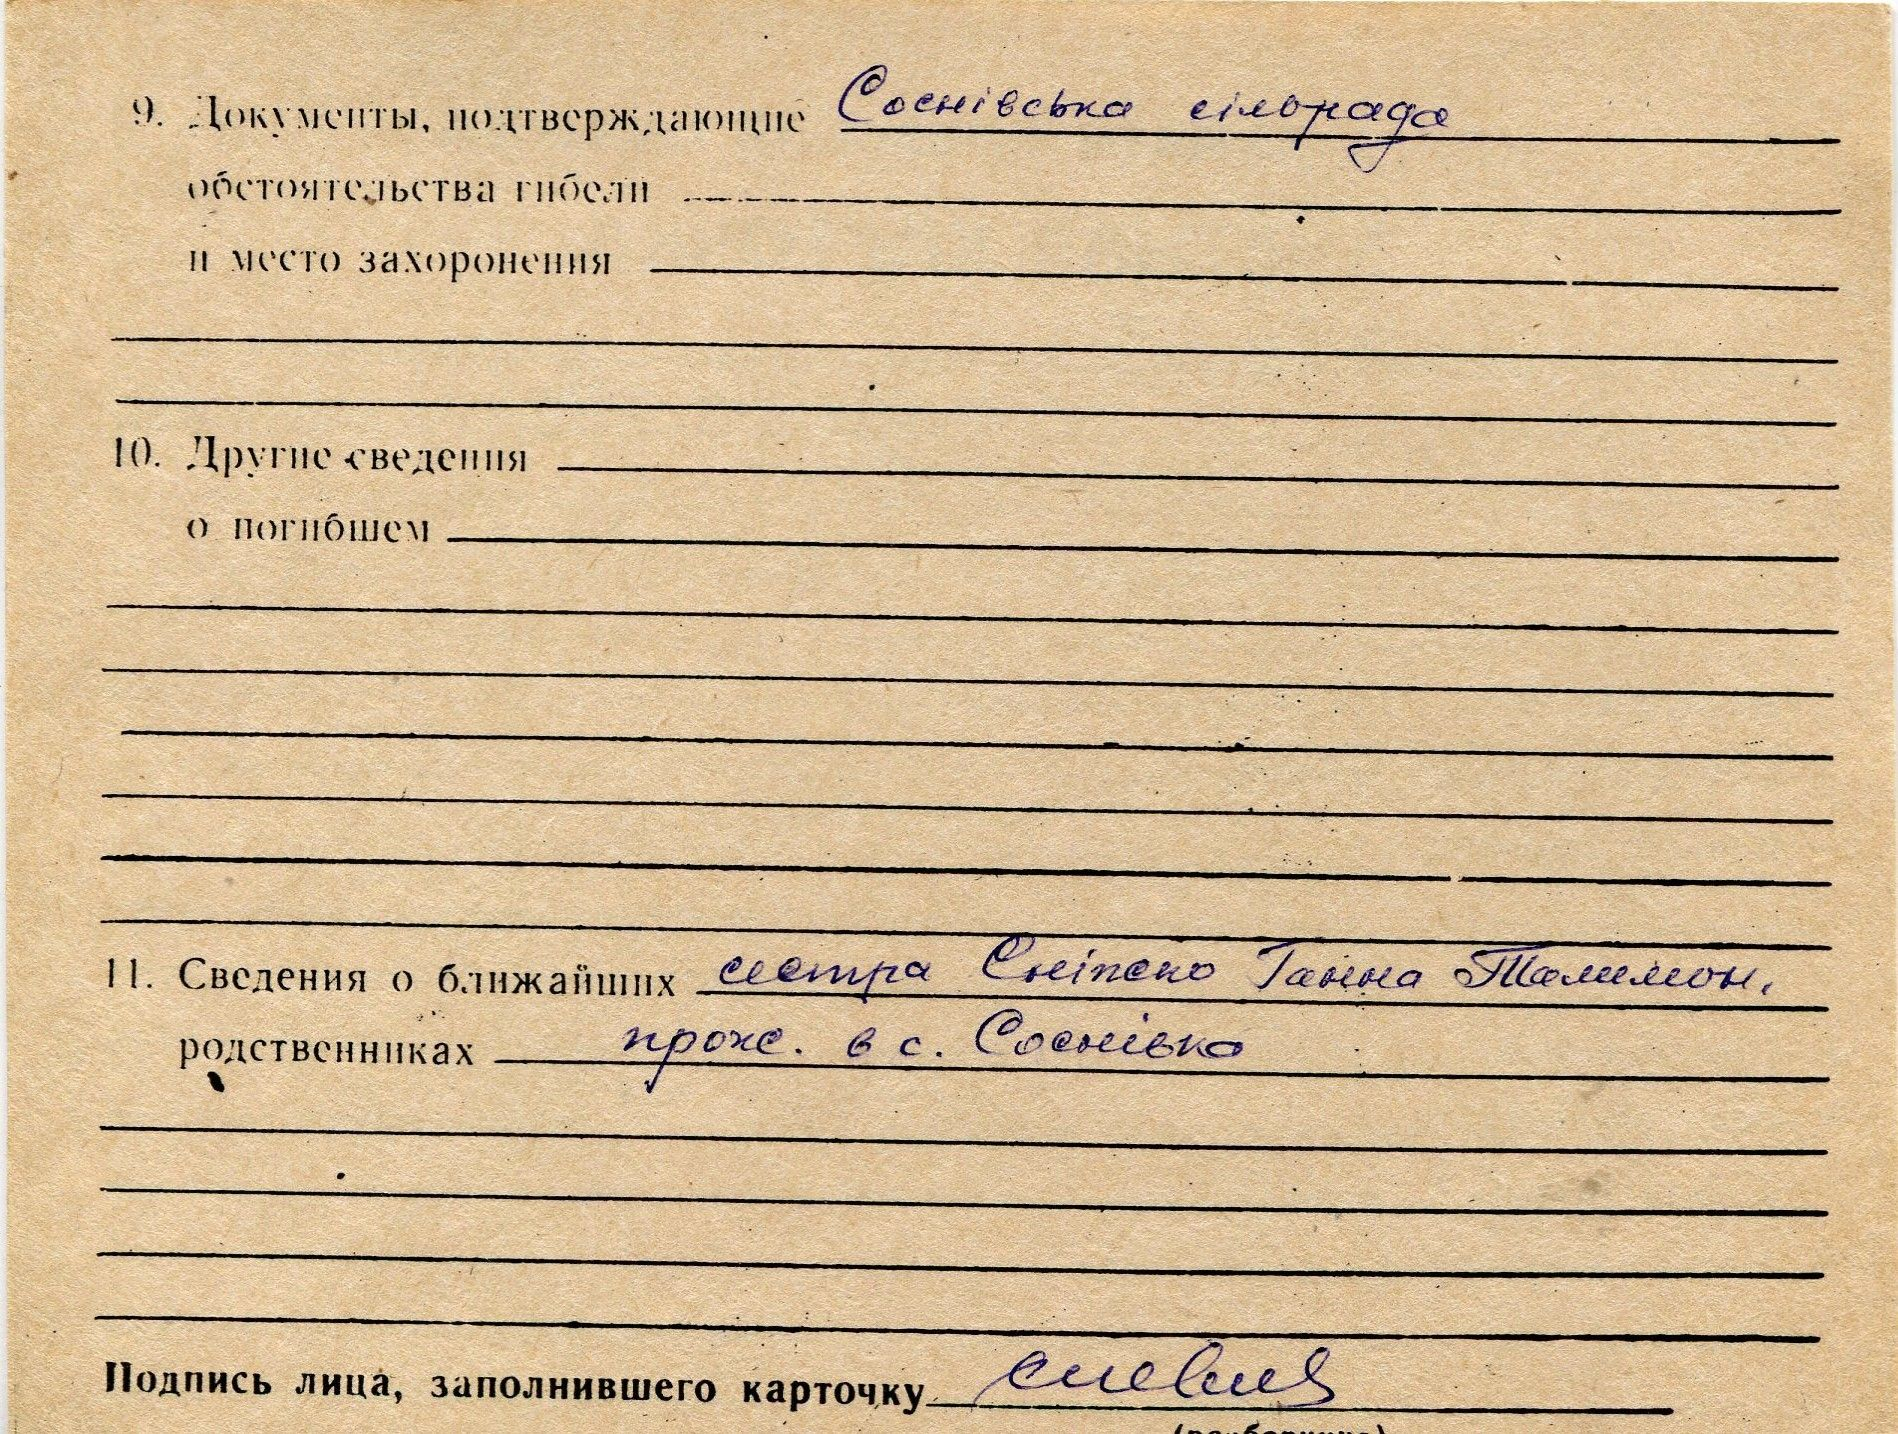 9. Документы, подтверждающие Соснівська сільрада
обстоятельства гибели
и место захоронения
10. Другие сведения
о погибшем
11. Сведения о ближайших сестра Ганна
родственниках прож. в с. Соснівка
Подпись лица, заполнившего карточку